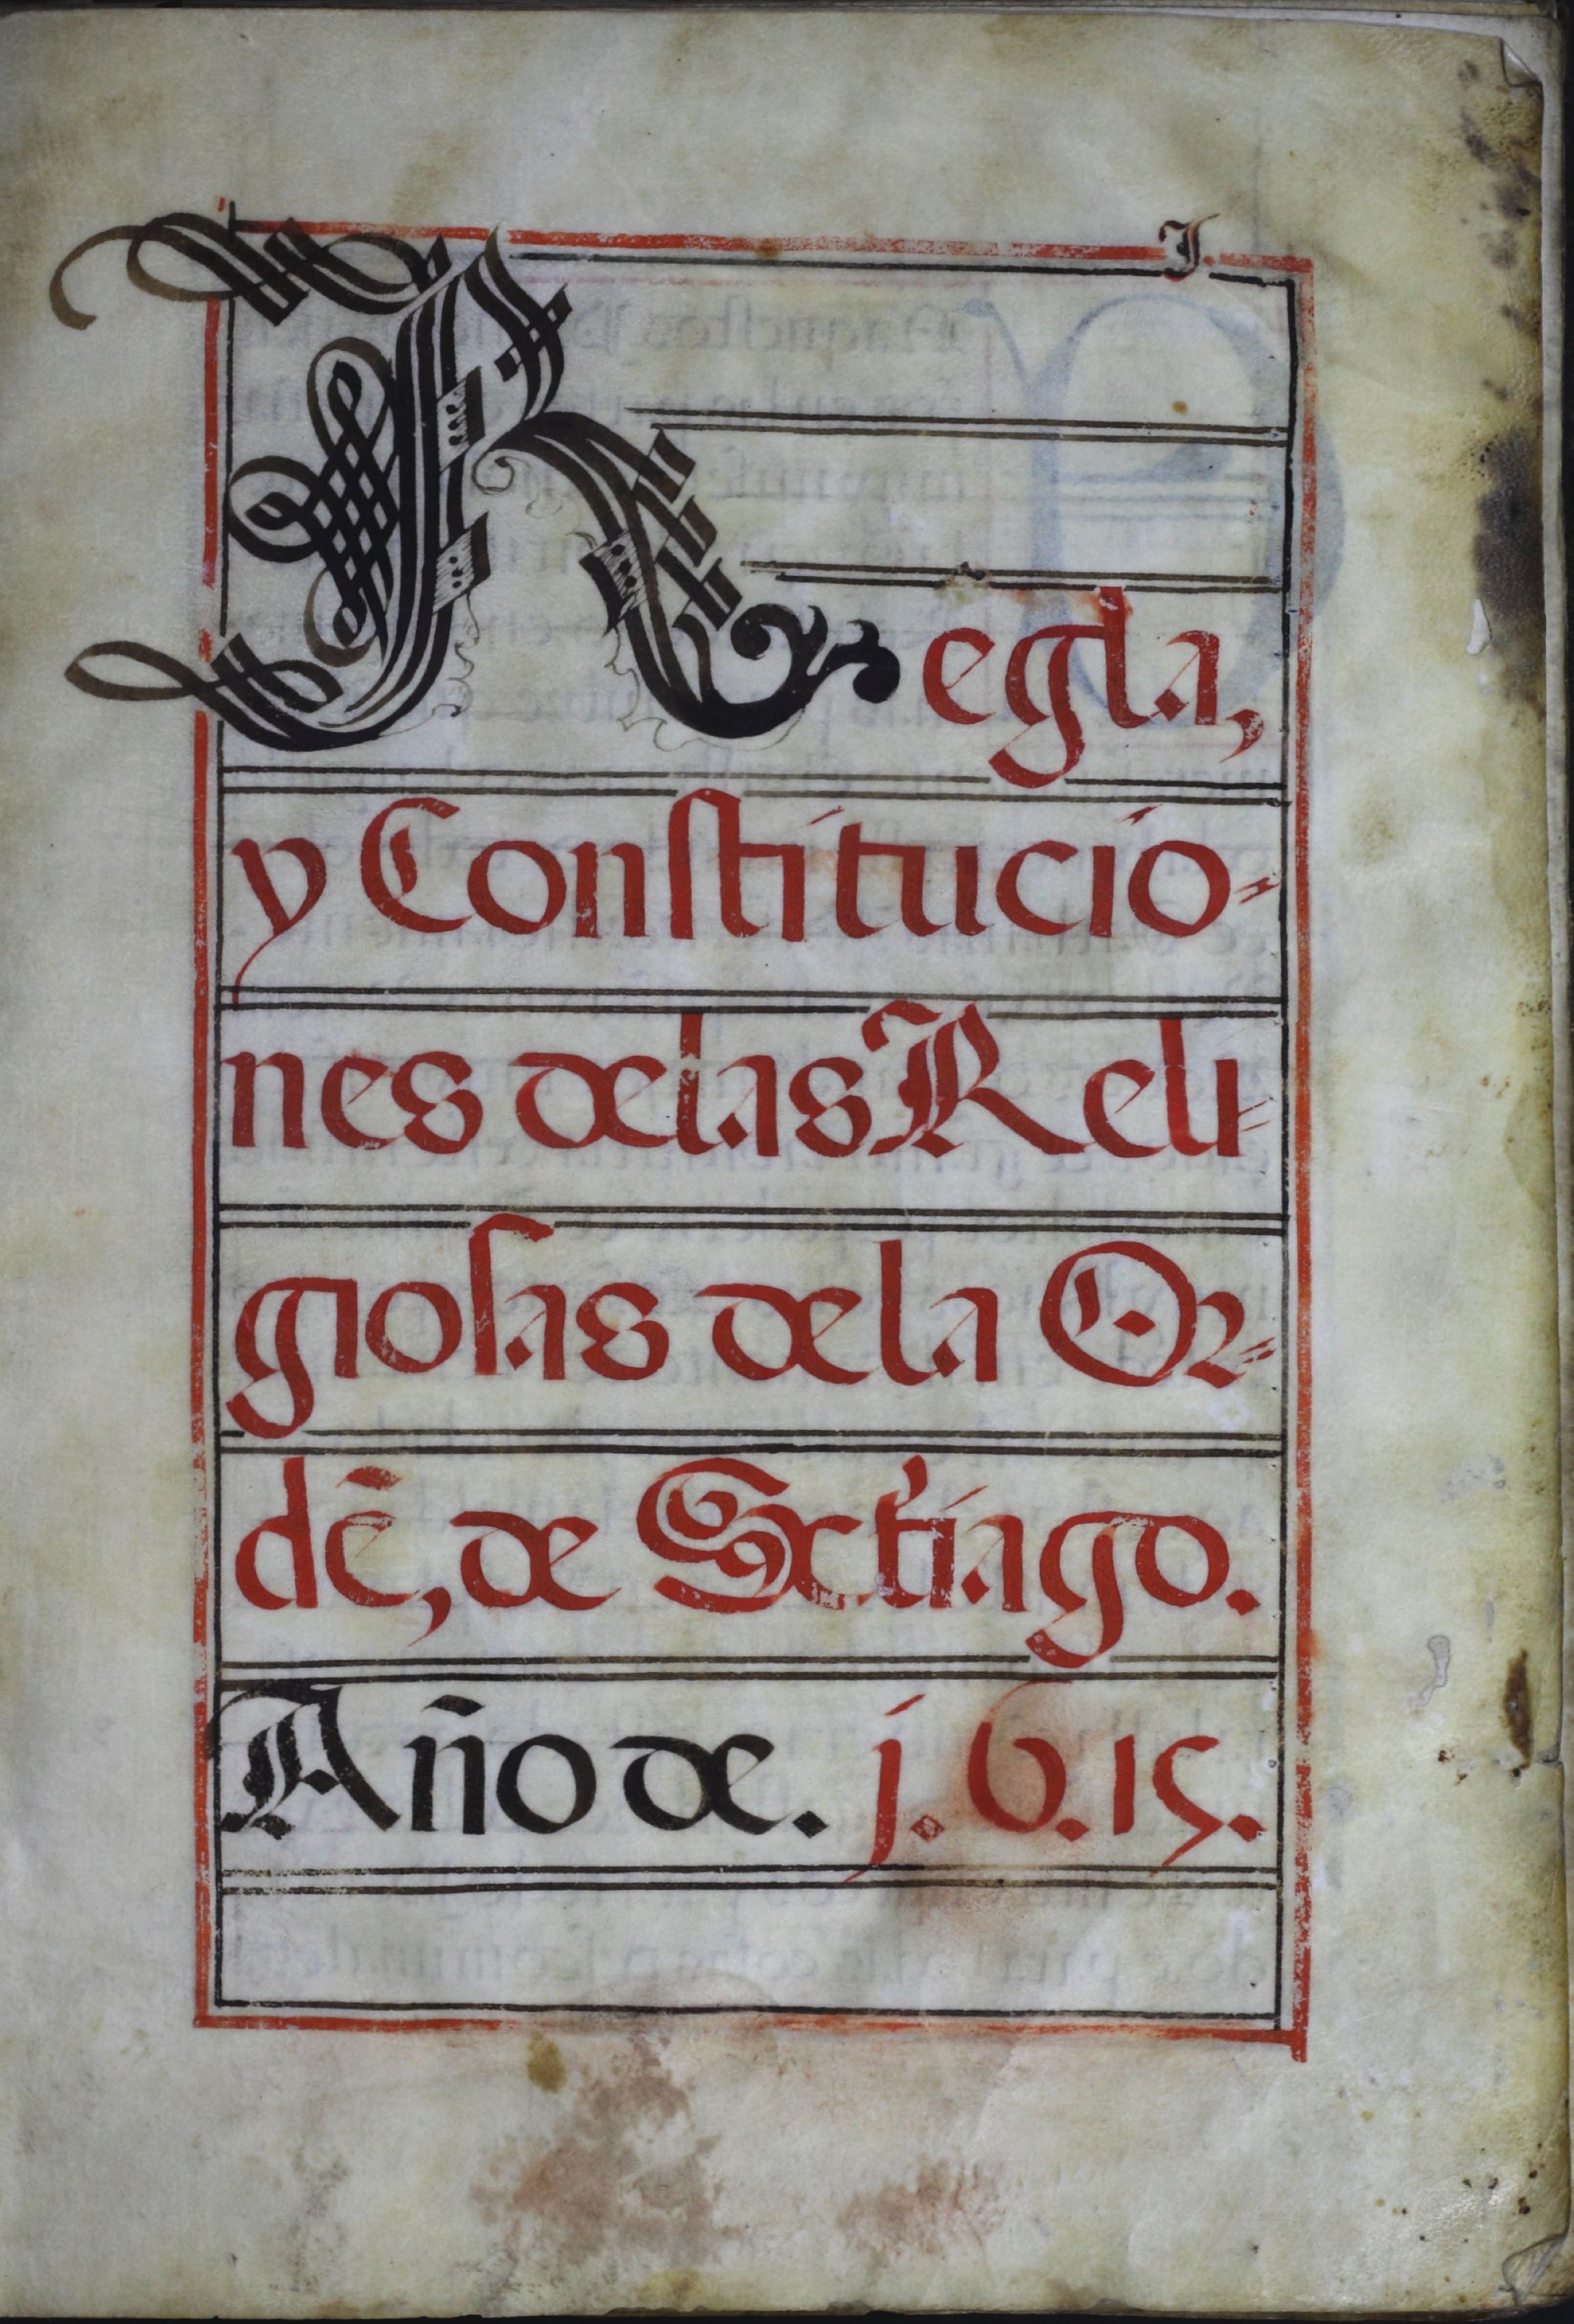 I.
Regla,
y Conſtitucio-
nes delas Reli-
gioſas dela Or-
dē, de Sctiago.
Año de. j.6.15.